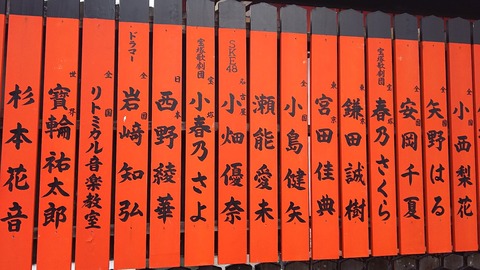 全
小西梨花
全国
矢野はる
全国
安岡千夏
宝塚歌劇団
宝塚
春乃さくら
東京
鎌田誠樹
東京
宮田佳典
全国
小島健矢
瀬能愛未
SKE48
名古屋
小畑優奈
宝塚歌劇団
宝塚
小春乃さよ
日本
西野綾華
ドラマー
全国
岩﨑知弘
全国
リトミカル音楽教室
世界
寶輪祐太郎
杉本花音